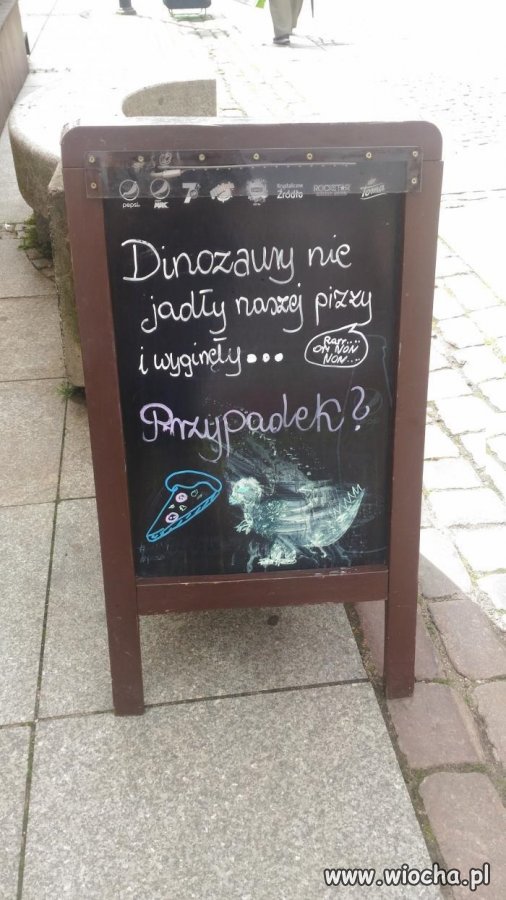 pepsi Krystaliczne Źródło ROCKSTAR Toma
Dinozaury nie
jadły naszej pizzy
i wyginęły...
Rarr....
OM NON
NON....
Przypadek?
www.wiocha.pl